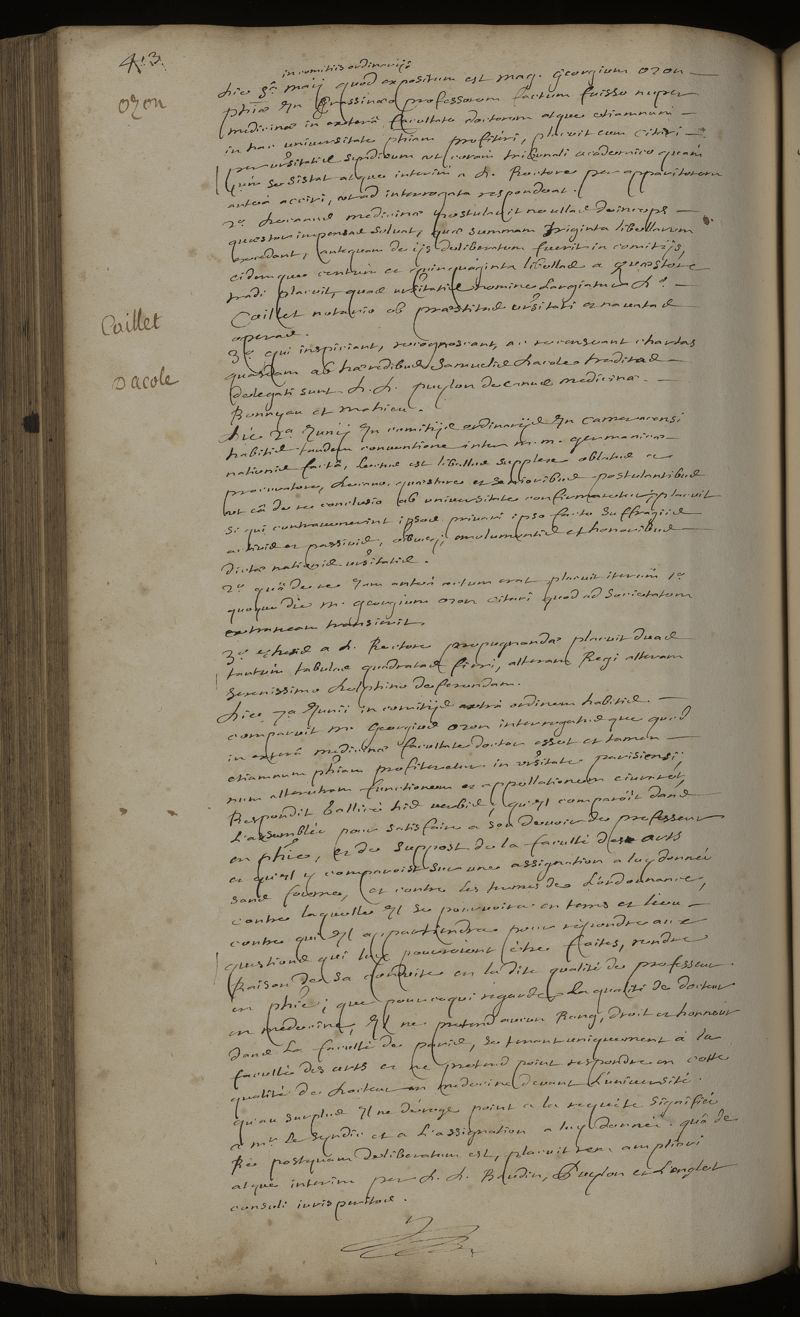 413.
in comitiis ordinariis
die 5a maij quod expositum est mag. georgium ozon
ozon
phiae in Grassinaeo professorem factum fuisse nuper
medicinae in exterâ facultate doctorem atque etiamnum
in hac universitate phiam profiteri, placuit eum citari
per uñsitatis syndicum ut coram tribunali academico quam
sistat atque interim a D. Rectore per apparitorem
anteà acciri, ut ad interrogata respondeat.
2o decanus medicinae postulavit ne ullas deinceps
quaestor impensas solvat, quae summam triginta libellarum
excedant, antequam de ijs deliberatum fuerit in comitijs,
eidemque centum et quinquaginta libellas a quaestore
tradi placuit, quas uñsitatis nomine largiatur D.
Caillet
Caillet notario ob praestitas uñsitati et navatas
operas.
3o qui inspiciant, recognoscant, ac recenseant chartas
Dacole
quasdam ab haeredibus Samuelis Dacole traditas
delegati sunt D. D. puylon decanus medicinae.
Bonnyeu et mahieu.
die 2a Junij in comitijs ordinarijs in Cameracensi
habitis tandem conventione inter m. m. germanicae
nationis factâ, lectus est libellus supplex oblatus a
procuratore, decano, quaestore et senioribus postulantibus
ut eâ de re conclusio ab universitate confirmaretur, placuit
si qui contravenerint ipsos privari ipso facto suffragiis
activis et passivis, emolumentis et honoribus
dictae nationis uñsitatis.
2o quâ de re jam anteà actum erat placuit iterum 1o
quoque die m. georgium ozon citari quod ad societatem
extraneam transierit.
3o theses a D. Rectore propugnandae placuit duas
tantum tabulas quadratas fieri, alteram Regi alteram
serenissimo delphino deferendam.
die 7a Junii in comitijs extrà ordinem habitis.
comparuit m. Georgius ozon interrogatus que quod
in exterâ medicinae facultate doctor esset et tamen
etiamnum phiam profiteretur in uñsitate parisiensi,
num alterutram functionem et appellationem ejuraret,
Respondit Gallicè his verbis, qu'il comparoît dans
l'assemblée pour satisfaire a son devoir de professeur
en phie, et de suppost de la faculté des arts
et qu'il y comparoist sur une assignation a luy donnée
sans forme, et contre les termes de l'ordonnance,
contre laquelle il se pourvoira en tems et lieu
contre qui il appartiendra pour répondre aux
questions qui luy pourroient être faites, rendre
Raison de sa conduite en la dite qualité de professeur
en phie; que pour ce qui regarde la qualité de docteur
en medecine, il ne pretend aucun Rang, droit et honneur
dans la faculté de paris, se tenant uniquement à la
faculté des arts et ne pretend point respondre en cette
qualité de docteur en medecine devant l'université.
qu'au surplus il ne déroge point a la requête signifiée
a mr. le syndic et a l'assignation a luy donnée. quâ de
Re postquam deliberatum est, placuit rem ampliari
atque interim per D. D. Baudin, Puylon et Lenglet
consuli jurisperitos.